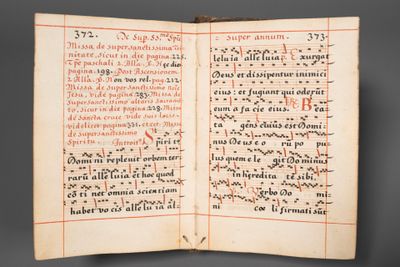 372. De Sup. SSmo Spu
Missa de super sanctissima Tri
nitate, sicut in die pagina 225.
T pe paschali 2. Alla. V. H ꝯe die
pagina 198. Post Ascensionem
2. Alla. V. Non vos rel. pag. 212.
Missa de super Sanctissimo noīe
Jesu, vide pagina 283. Missa de
Super Sanctissimo altaris Sacramē
to, sicut in die pagina 228. Missa
de sancta cruce vide suis locis
videlicet pagina 331. et cet. Missa
de Super sanctissimo
Spiritu. Introit. Spiri tꝰ
Domi ni replevit orbem ter
rarū alle luia et hoc quod
cō ti net omnia scientiam
habet vo cis alle lu ia al-
Super annum. 373.
leluia alle luia. p. Exurgat
Deus et dissipentur inimici
eius: et fugiant qui oderūt
eum a fa cie eius. VE. Bea
ta gens cuius est Domi-
nus De us e o rū po pu
lus quem e le git Do minus
in hęredita tē sibi.
Verbo Do mi-
ni cœ li firmati sūt